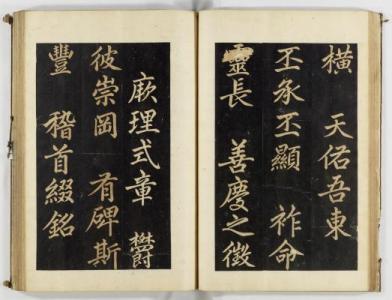 橫 天佑吾東
丕承丕顯 祚命
靈長 善慶之徵
厥理式章 欝
彼崇岡 有碑斯
豐 稽首綴銘